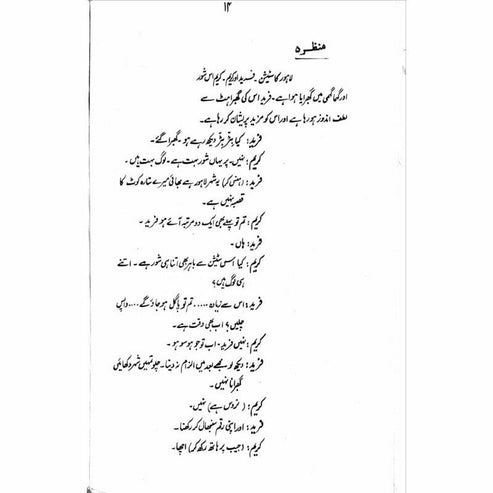 ۱۴
منظر ۵
لاہور کا سٹیشن - فرید اور کریم - کریم اس شور
اور گہما گہمی میں گھبرایا ہوا ہے - فرید اس کی گھبراہٹ سے
لطف اندوز ہو رہا ہے اور اس کو مزید پریشان کر رہا ہے۔
فرید: کیا بٹر بٹر دیکھ رہے ہو - گھبرا گئے۔
کریم: نہیں - پر یہاں شور بہت ہے - لوگ بہت ہیں۔
فرید: (ہنس کر) یہ شہر لاہور ہے بھائی میرے ستارہ کوٹ کا
قصبہ نہیں ہے۔
کریم: تم تو پہلے بھی ایک دو مرتبہ آئے ہو فرید -
فرید: ہاں۔
کریم: کیا اس سٹیشن سے باہر بھی اتنا ہی شور ہے - اتنے
ہی لوگ ہیں؟
فرید: اس سے زیادہ ..... تم تو پاگل ہو جاؤ گے .... واپس
چلیں؟ اب بھی وقت ہے۔
کریم: نہیں فرید - اب تو جو ہو سو ہو -
فرید: دیکھ لو مجھے بعد میں الزام نہ دینا - چلو تمہیں شہر دکھائیں
گھبرانا نہیں۔
کریم: (نروس ہے) نہیں۔
فرید: اور اپنی رقم سنبھال کر رکھنا -
کریم: (جیب پر ہاتھ رکھ کر) اچھا۔